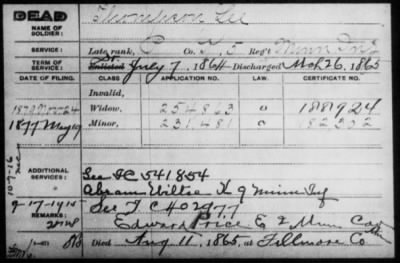 DEAD
NAME OF SOLDIER: Thompson Lee
SERVICE: Late rank, Co. 5 Reg't Minn Inf
TERM OF SERVICE: Enlisted July 7, 1864 Discharged Mch 26, 1865
DATE OF FILING. CLASS APPLICATION NO. LAW. CERTIFICATE NO.
Invalid,
Nov 24 Widow, 254863 O 188924
1877 May 19 Minor, 231,481 O
ADDITIONAL SERVICES:
See 541854
Abram Wiltse K 9 Minn Inf
9-17-1915 See C 402977
REMARKS: Edward Price E 2 Minn Cav
Died Aug 11, 1865, at Fillmore Co